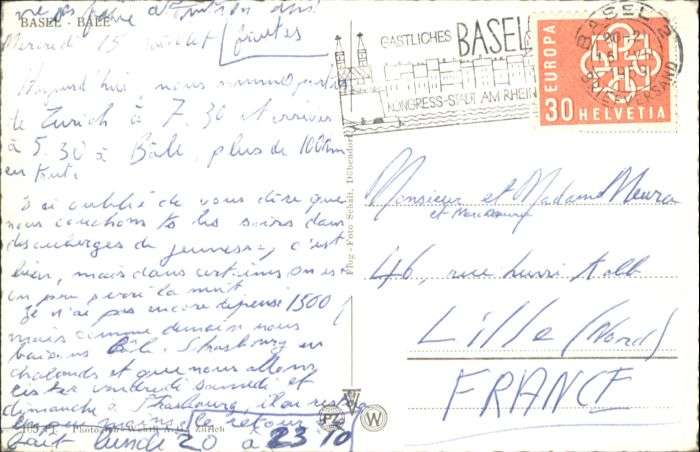 ne pas faire attention aux
BASEL - BÂLE
Mercredi 15 juillet fautes
Aujourd'hui, nous sommes partis
de Zurich à 7.30 et arrivés
à 5.30 à Bâle, plus de 100km
en tout.
J'ai oublié de vous dire que
nous couchons ts les soirs dans
des auberges de jeunesse, c'est
bien, mais dans certaines on est
un peu serré la nuit
Je n'ai pas encore dépensé 1500
mais comme demain nous
faisons Bâle. Strasbourg en
chalands et que nous allons
rester vendredi samedi et
dimanche à Strasbourg, il
le retour se
fait lundi 20 à 23 10
103 Photo Zürich
Flug-Foto Schait, Dübendorf
GASTLICHES BASEL
KONGRESS-STADT AM RHEIN
BASEL 2
BRIEFVERSAND
EUROPA
30 HELVETIA
Monsieur et Madame
et
46, rue henri Kolb
Lille (Nord)
FRANCE
W